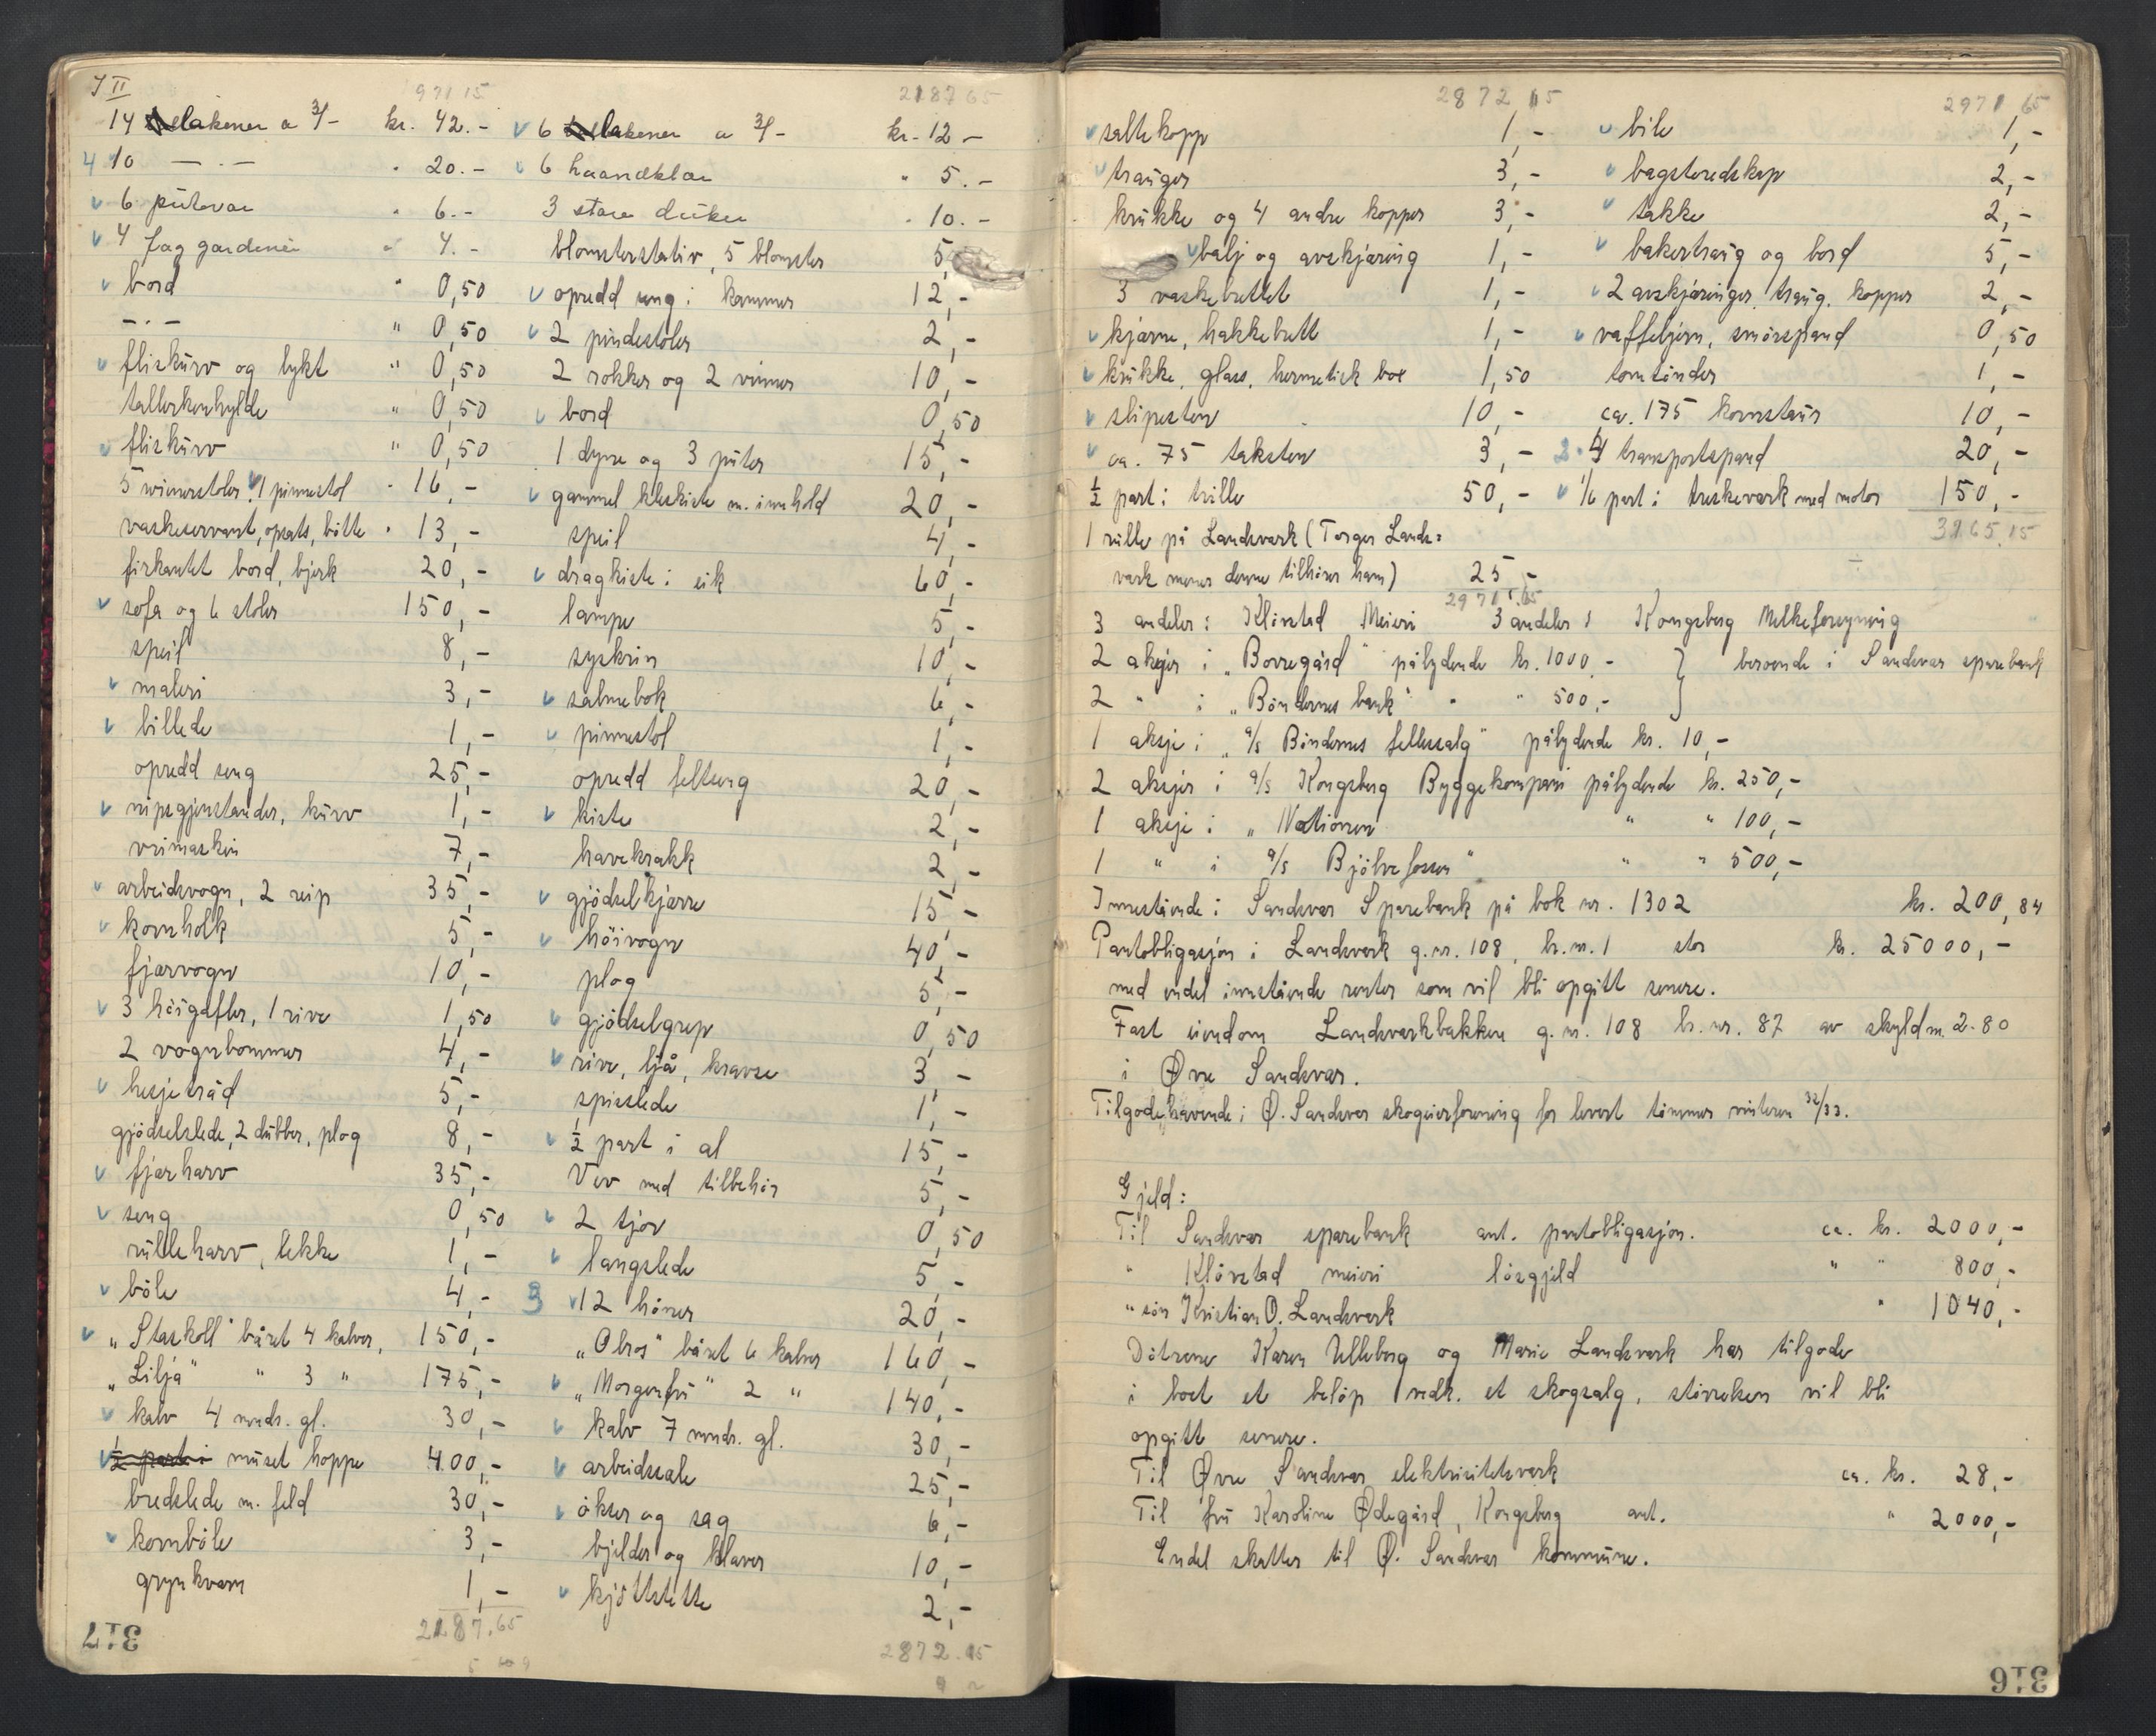 II
971 15
14 lakener a 3/- kr. 42.-
4 10 — . — " 20.-
6 putevar " 6.-
4 fag gardiner " 4.-
bord " 0,50
— . — " 0,50
fliskurv og lykt " 0,50
tallerkenhylde " 0,50
fliskurv " 0,50
5 wienerstoler 1 pinnestol " 16,-
vaskeservant, opsats, bøtte " 13,-
firkantet bord, bjerk 20,-
sofa og 6 stoler 150,-
speil 8,-
maleri 3,-
billede 1,-
opredd seng 25,-
nipsgjenstander, kurv 1,-
vrimaskin 7,-
arbeidsvogn, 2 reip 35,-
kornholk 5,-
fjærvogn 10,-
3 høigafler, 1 rive 1,50
2 vognbommer 4,-
hesjetråd 5,-
gjødselslede, 2 dubber, plog 8,-
fjærharv 35,-
seng 0,50
rulleharv, lekke 1,-
bøle 4,-
"Staskoll" båret 4 kalver, 150,-
"Lilja" " 3 " 175,-
kalv 4 mnds. gl. 30,-
1/2 part i muset hoppe 400,-
bredslede m. feld 30,-
kornbøle 3,-
grynkvern 1,-
2187.65
317
2187 65
6 lakener a 3/- kr. 12 -
6 haandklær " 5.-
3 store duker " 10.-
blomsterstativ, 5 blomster 5,-
opredd seng i kammer 12,-
2 pindestoler 2,-
2 rokker og 2 vinner 10,-
bord 0,50
1 dyne og 3 puter 15,-
gammel kleskiste m. innhold 20,-
speil 4,-
dragkiste i eik 60,-
lampe 5,-
syskrin 10,-
salmebok 6,-
pinnestol 1,-
opredd feltseng 20,-
kiste 2,-
havekrakk 2,-
gjødselkjærre 15,-
høivogn 40,-
plog 5,-
gjødselgrep 0,50
rive, ljå, kravse 3,-
spisslede 1,-
1/2 part i al 15,-
Vev med tilbehør 5,-
2 tjor 0,50
langslede 5,-
3 12 høner 20,-
"Olros" båret 6 kalver 160,-
"Morgenfru" 2 " 140,-
kalv 7 mnds. gl. 30,-
arbeidssale 25,-
økser og sag 6,-
bjelder og klaver 10,-
kjøttstette 2,-
2872.15
2872 15
saltekopp 1,-
trauger 3,-
krukke og 4 andre kopper 3,-
balj og avskjæring 1,-
3 vaskebrettet 1,-
kjærne, hakkebrett 1,-
krukke, glass, hermetisk box 1,50
slipesten 10,-
ca. 75 taksten 3,-
1/2 part i trille 50,-
1 rulle på Landsverk (Torger Lands=
verk mener denne tilhører ham) 25,-
2971.65
2971 65
bile 1,-
bagsteredskap 2,-
takke 2,-
bakertraug og bord 5,-
2 avskjæringer, traug, kopper 2,-
vaffeljern, smørspand 0,50
tomtønder 1,-
ca. 175 kornstaur 10,-
2. 4 transportspand 20,-
1/6 part i treskeverk med motor 150,-
3165.15
3 andeler i Kløvstad Meieri 3 andeler i Kongsberg Melkeforsyning
2 aksjer i "Borregård" pålydende kr. 1000.- } beroende i Sandsvær sparebank
2 " i "Bøndernes bank" " " 500,-
1 aksje i "a/s Bøndernes fellessalg" pålydende kr. 10,-
2 aksjer i a/s Kongsberg Byggekompani pålydende kr. 250,-
1 aksje i "Nationen " " 100,-
1 " i a/s Bjølvefossen" " " 500,-
Innestående i Sandsvær Sparebank på bok nr. 1302 kr. 200,84
Pantobligasjon i Landsverk g.nr. 108, br.nr. 1 stor kr. 25000,-
med endel innstående renter som vil bli opgitt senere.
Fast eiendom Landsverkbakken g.nr. 108 br.nr. 87 av skyldm. 2.80
i Øvre Sandsvær.
Tilgodehavende i Ø. Sandsvær skogeierforening for levert tømmer vinteren 32/33.
Gjeld:
Til Sandsvær sparebank ant. pantobligasjon. ca. kr. 2000,-
" Kløvstad meieri løsgjeld " " 800,-
" søn Kristian O. Landsverk " 1040,-
Døtrene Karen Ulleberg og Marie Landsverk har tilgode
i boet et beløp vedr. et skogsalg, størrelsen vil bli
opgitt senere.
Til Øvre Sandsvær elektrisitetsverk ca. kr. 28,-
Til fru Karoline Ødegård, Kongsberg ant. " 2000,-
Endel skatter til Ø. Sandsvær kommune.
316